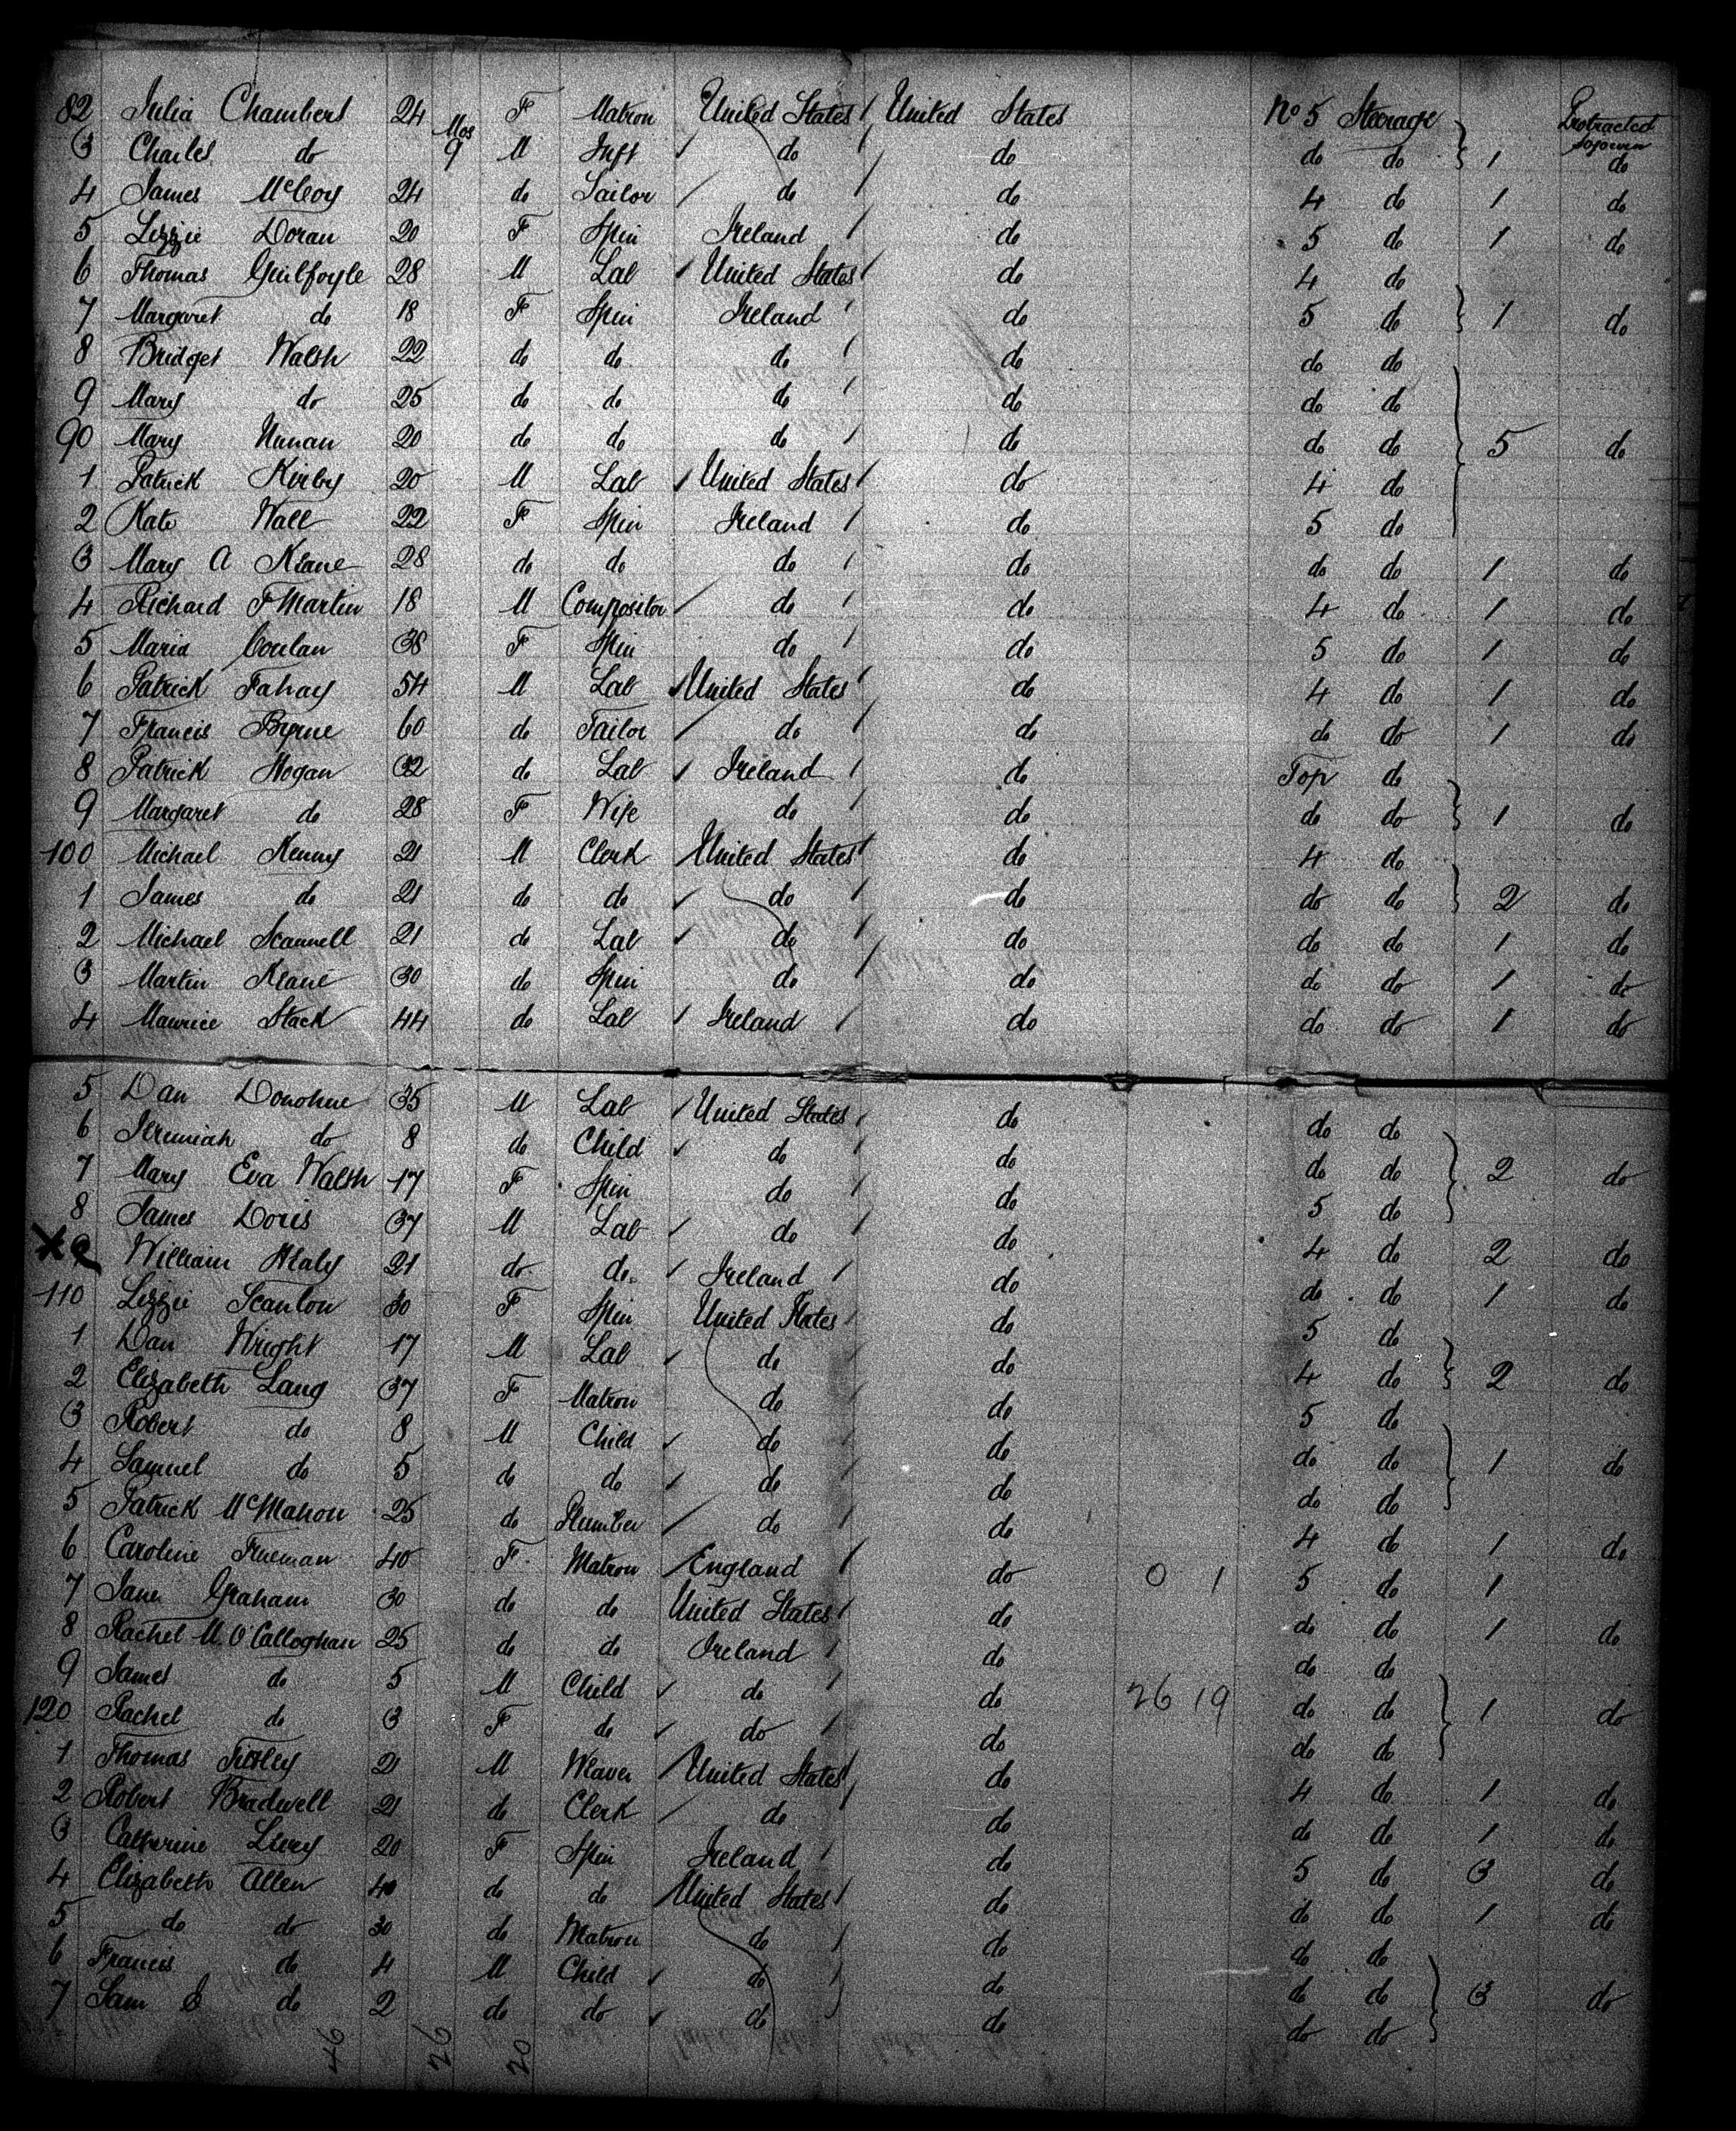 82 Julia Chambers 24 F Matron United States United States No 5 Steerage Protracted Sojourn
3 Charles do Mos 9 M Inft do do do do 1 do
4 James McCoy 24 do Sailor do do 4 do 1 do
5 Lizzie Doran 20 F Spin Ireland do 5 do 1 do
6 Thomas Guilfoyle 28 M Lab United States do 4 do
7 Margaret do 18 F Spin Ireland do 5 do 1 do
8 Bridget Walsh 22 do do do do do do
9 Mary do 25 do do do do do do
90 Mary Nunan 20 do do do do do do 5 do
1 Patrick Kirby 20 M Lab United States do 4 do
2 Kate Wall 22 F Spin Ireland do 5 do
3 Mary A Keane 28 do do do do do do 1 do
4 Richard F Martin 18 M Compositor do do 4 do 1 do
5 Maria Conlan 38 F Spin do do 5 do 1 do
6 Patrick Fahay 54 M Lab United States do 4 do 1 do
7 Francis Byrne 60 do Tailor do do do do 1 do
8 Patrick Hogan 32 do Lab Ireland do Top do
9 Margaret do 28 F Wife do do do do 1 do
100 Michael Kenny 21 M Clerk United States do 4 do
1 James do 21 do do do do do do 2 do
2 Michael Scannell 21 do Lab do do do do 1 do
3 Martin Keane 30 do Spin do do do do 1 do
4 Maurice Stack 44 do Lab Ireland do do do 1 do
5 Dan Donohue 35 M Lab United States do do do
6 Jeremiah do 8 do Child do do do do 2 do
7 Mary Eva Walsh 17 F Spin do do 5 do
8 James Doris 37 M Lab do do 4 do 2 do
X 9 William Healy 21 do do Ireland do do do 1 do
110 Lizzie Scanlon 30 F Spin United States do 5 do
1 Dan Wright 17 M Lab do do 4 do 2 do
2 Elizabeth Lang 37 F Matron do do 5 do
3 Robert do 8 M Child do do do do 1 do
4 Samuel do 5 do do do do do do
5 Patrick McMahon 25 do Plumber do do 4 do 1 do
6 Caroline Trueman 40 F Matron England do 0 1 5 do 1
7 Jane Graham 30 do do United States do do do 1 do
8 Rachel M. O'Calloghan 25 do do Ireland do do do
9 James do 5 M Child do do 26 19 do do 1 do
120 Rachel do 3 F do do do do do
1 Thomas 21 M Weaver United States do 4 do 1 do
2 Robert Bradwell 21 do Clerk do do do do 1 do
3 Catherine Lucy 20 F Spin Ireland do 5 do 3 do
4 Elizabeth Allen 40 do do United States do do do 1 do
5 do do 30 do Matron do do do do
6 Francis do 4 M Child do do do do 3 do
7 Sam do 2 do do do do do do
46 26 20